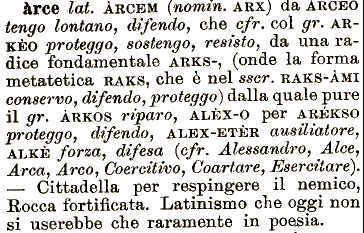 àrce lat. ÀRCEM (nomin. ARX) da ARCEO
tengo lontano, difendo, che cfr. col gr. AR-
KÈO proteggo, sostengo, resisto, da una ra-
dice fondamentale ARKS-, (onde la forma
metatetica RAKS, che è nel sscr. RAKS-ÀMI
conservo, difendo, proteggo) dalla quale pure
il gr. ÀRKOS riparo, ALÈX-O per ARÈKSO
proteggo, difendo, ALEX-ETÈR ausiliatore,
ALKÈ forza, difesa (cfr. Alessandro, Alce,
Arca, Arco, Coercitivo, Coartare, Esercitare).
— Cittadella per respingere il nemico,
Rocca fortificata. Latinismo che oggi non
si userebbe che raramente in poesia.